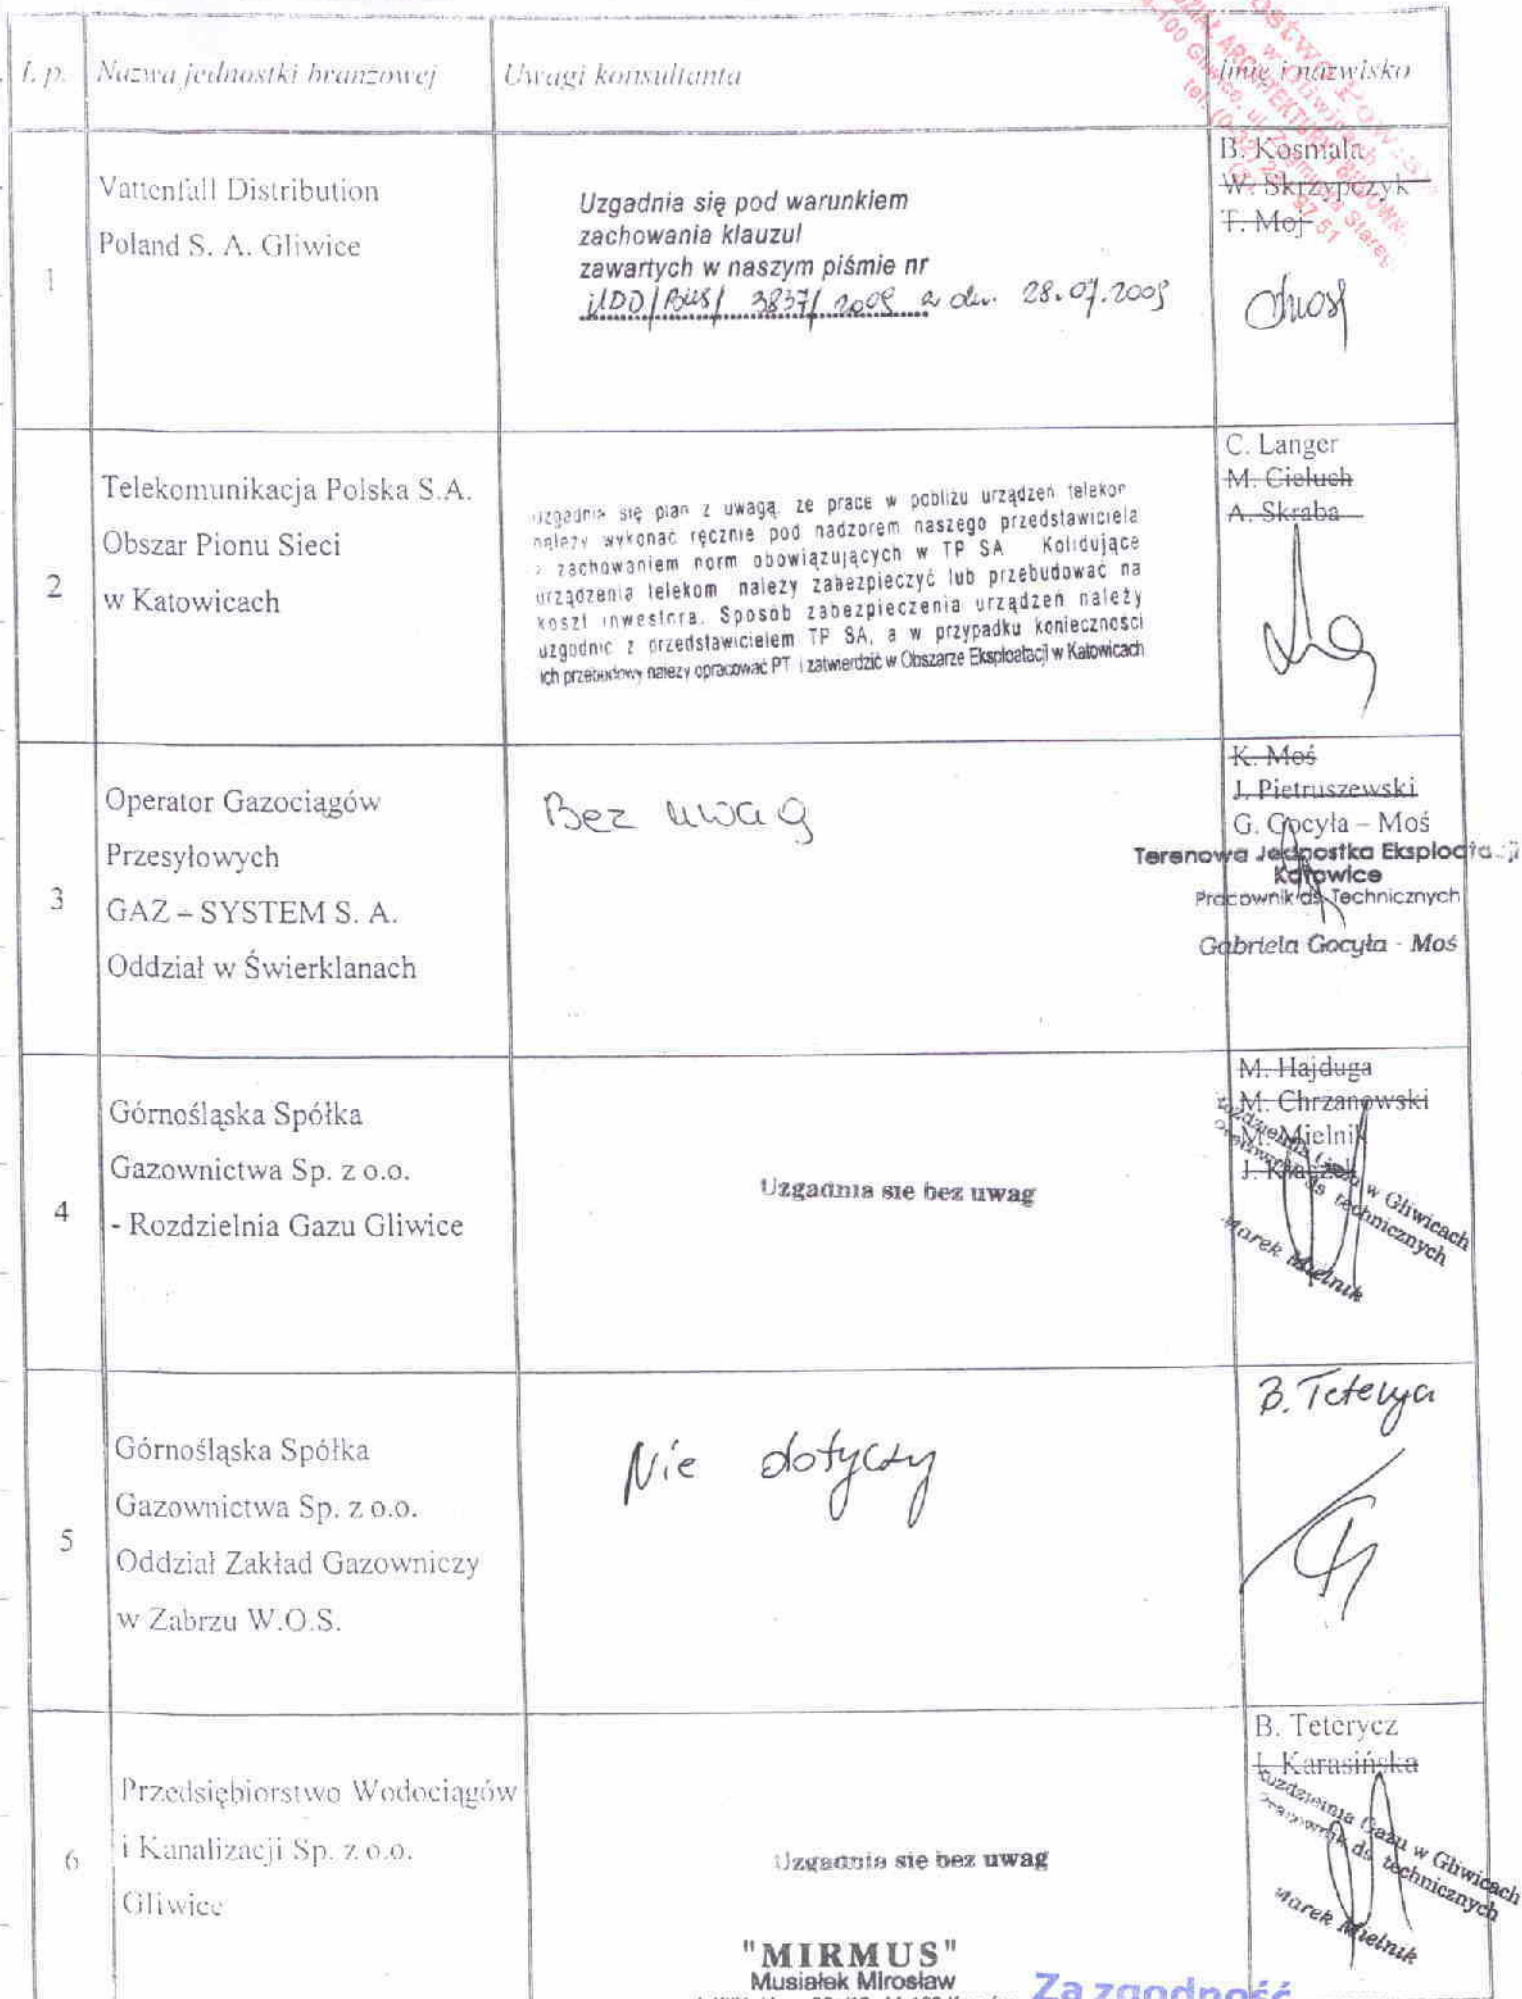 L. p. Nazwa jednostki branżowej Uwagi konsultanta Imię i nazwisko
1
Vattenfall Distribution
Poland S. A. Gliwice
Uzgadnia się pod warunkiem
zachowania klauzul
zawartych w naszym piśmie nr
3837/ 28.07.2009
B. Kosmala
W. Skrzypczyk
T. Moj
2
Telekomunikacja Polska S.A.
Obszar Pionu Sieci
w Katowicach
uzgadnia się plan z uwagą, że prace w pobliżu urządzeń telekom
należy wykonać ręcznie pod nadzorem naszego przedstawiciela
z zachowaniem norm obowiązujących w TP SA Kolidujące
urządzenia telekom należy zabezpieczyć lub przebudować na
koszt inwestora. Sposób zabezpieczenia urządzeń należy
uzgodnić z przedstawicielem TP SA, a w przypadku konieczności
ich przebudowy należy opracować PT i zatwierdzić w Obszarze Eksploatacji w Katowicach
C. Langer
M. Cieluch
A. Skraba
3
Operator Gazociągów
Przesyłowych
GAZ – SYSTEM S. A.
Oddział w Świerklanach
Bez uwag
K. Moś
J. Pietruszewski
G. Gocyła – Moś
Terenowa Jednostka Eksploatacji
Katowice
Pracownik ds. Technicznych
Gabriela Gocyła - Moś
4
Górnośląska Spółka
Gazownictwa Sp. z o.o.
- Rozdzielnia Gazu Gliwice
Uzgadnia sie bez uwag
M. Hajduga
M. Chrzanowski
M. Mielnik
J.
Rozdzielnia Gazu w Gliwicach
Pracownik ds technicznych
Marek Mielnik
5
Górnośląska Spółka
Gazownictwa Sp. z o.o.
Oddział Zakład Gazowniczy
w Zabrzu W.O.S.
Nie dotyczy
B.
6
Przedsiębiorstwo Wodociągów
i Kanalizacji Sp. z o.o.
Gliwice
Uzgadnia sie bez uwag
B. Teterycz
I. Karasińska
Rozdzielnia Gazu w Gliwicach
Pracownik ds technicznych
Marek Mielnik
"MIRMUS"
Musiałek Mirosław
Za zgodność